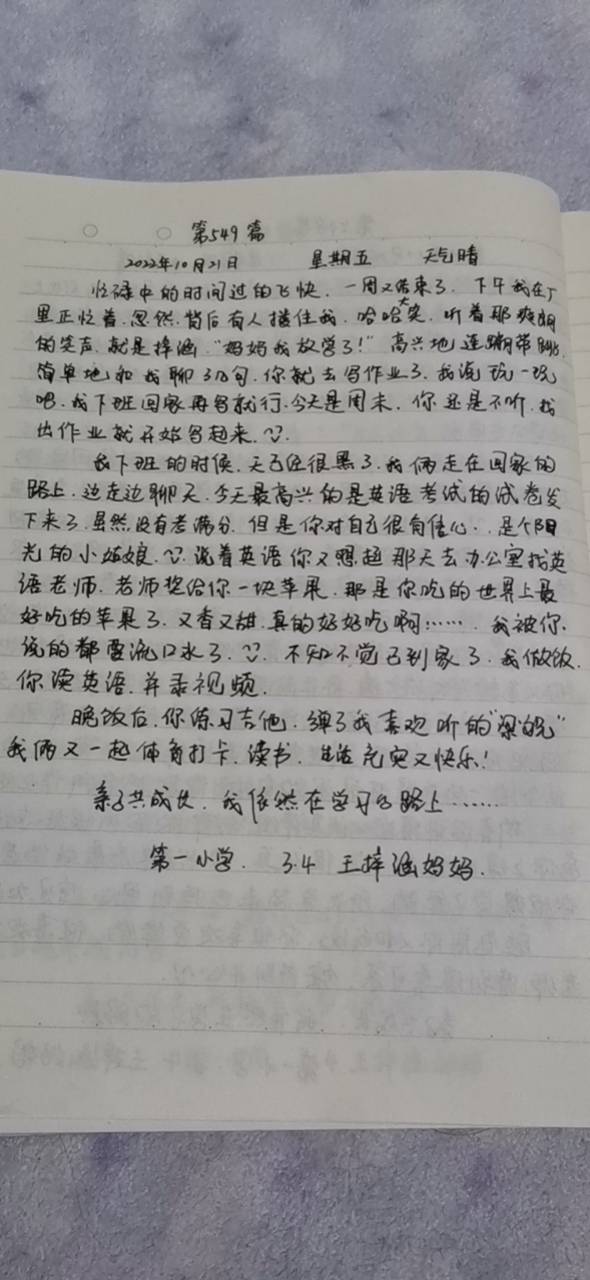 第549篇
2022年10月21日 星期五 天气晴
忙碌中的时间过的飞快,一周又结束了,下午我在厂
里正忙着,忽然背后有人搂住我,哈哈大笑,听着那爽朗
的笑声,就是梓涵,“妈妈我放学了!”高兴地连蹦带跳,
简单地和我聊了几句,你就去写作业了,我说玩一玩
吧,我下班回家再写就行,今天是周末,你还是不听,找
出作业就开始写起来,
我下班的时候,天已经很黑了,我俩走在回家的
路上,边走边聊天,今天最高兴的是英语考试的试卷发
下来了,虽然没有考满分,但是你对自己很有信心,是个阳
光的小姑娘,说着英语你又想起那天去办公室找英
语老师,老师奖给你一块苹果,那是你吃的世界上最
好吃的苹果了,又香又甜,真的好好吃啊……,我被你
说的都要流口水了,不知不觉已到家了,我做饭,
你读英语,并录视频,
晚饭后,你练习吉他,弹了我喜欢听的
我俩又一起体育打卡、读书,生活充实又快乐!
亲子共成长,我依然在学习的路上……
第一小学, 3.4 王梓涵妈妈,